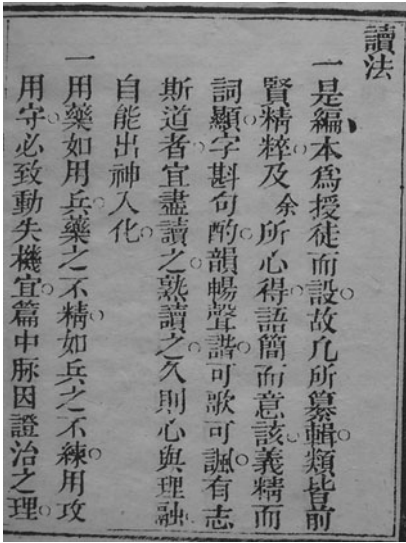 讀法
一是編本爲授徒而設故凡所纂輯類皆前
賢精粹及余所心得語簡而意該義精而
詞顯字斟句酌韻暢聲諧可歌可諷有志
斯道者宜盡讀之熟讀之久則心與理融
自能出神入化
一用藥如用兵藥之不精如兵之不練用攻
用守必致動失機宜篇中脉因證治之理